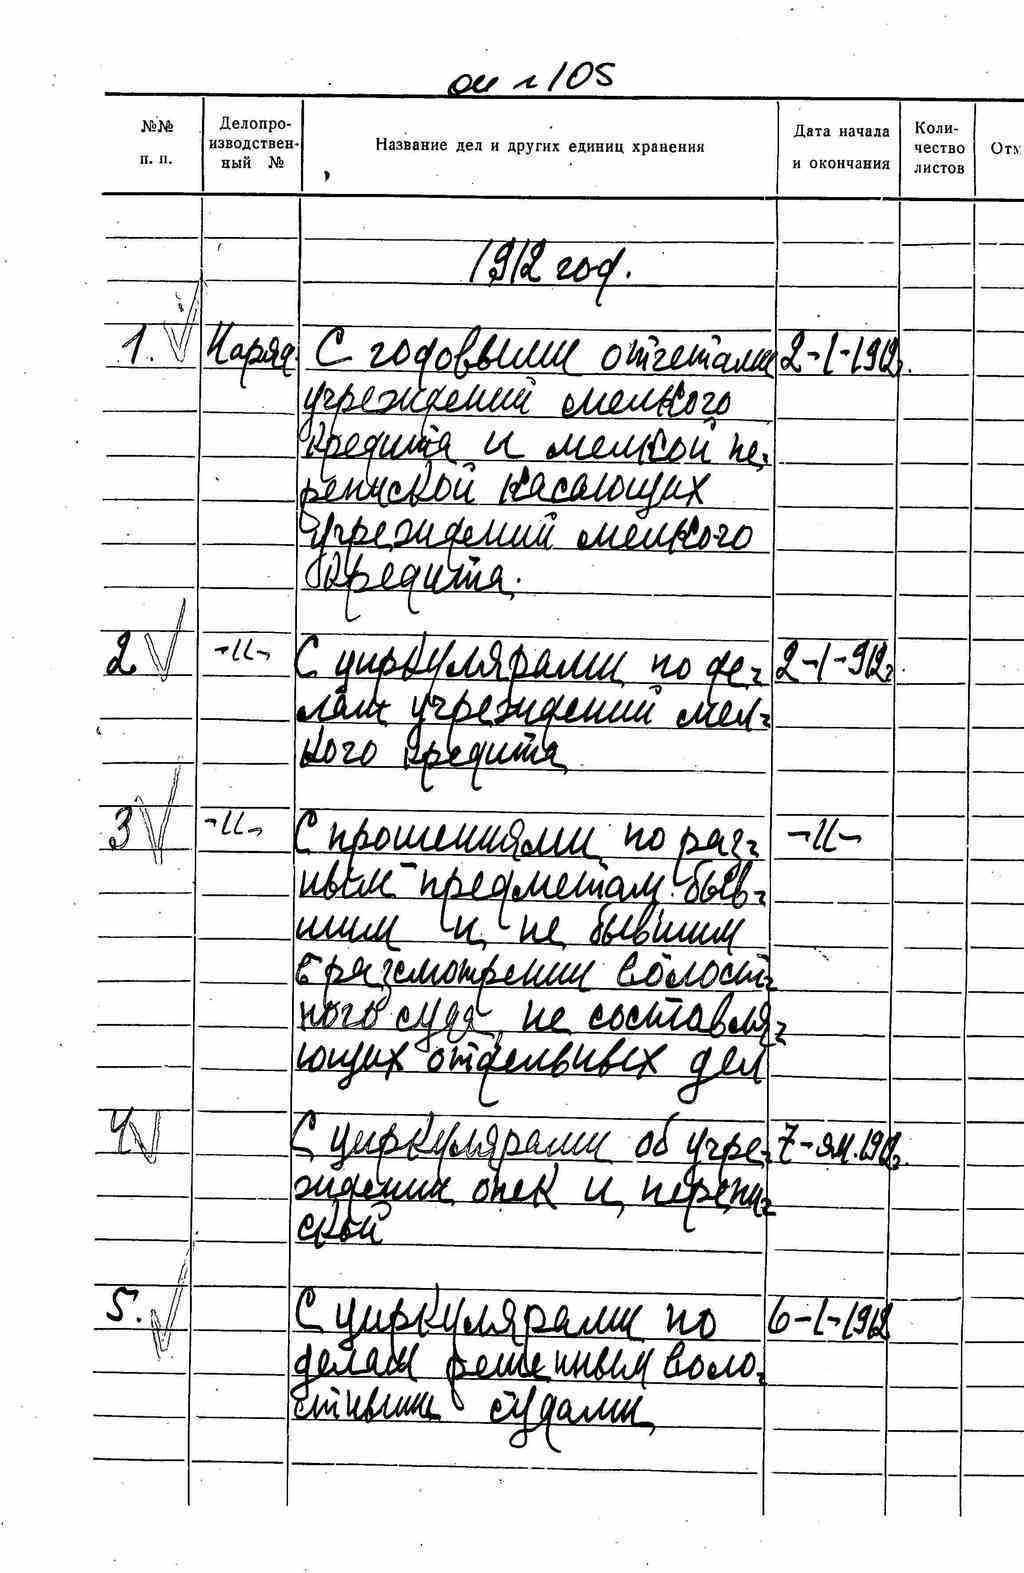 оп г 105
№№ п. п.
Делопро-
изводствен-
ный №
Название дел и других единиц хранения
Дата начала
и окончания
Коли-
чество
листов
1912 год.
1. Наряд. С годовыми отчетами 2-I-1912г.
учреждений мелкого
кредита и мелкой пе-
репиской касающих
учреждений мелкого
кредита.
2 -"- С циркулярами по де- 2-I-912г.
лам учреждений мел-
кого кредита
3 -"- С прошениями по раз- -"-
ным предметам быв-
шим и не бывшим
в рассмотрении волост-
ного суда, не составля-
ющих отдельных дел
4 С циркулярами об учре- 7-ян.1912г.
ждении опек и перепи-
ской
5. С циркулярами по 6-I-1912
делам решенным воло-
стными судами